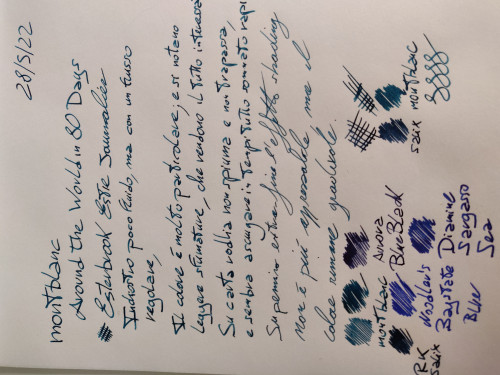 28/5/22
montblanc
Around the World in 80 Days
Esterbrook Estie Journalier
Inchiostro poco fluido, ma con un flusso
regolare,
Il colore è molto particolare, e si notano
leggere sfumature, che rendono il tutto interessa
Su carta rodhia non spiuma e non trapassa,
e sembra asciugare in tempi tutto sommato rapi
Su pennino extra-fine l'effetto shading
non è più apprezzabile, ma il
colore rimane gradevole.
montblanc
saix
Aurora
BlueBlack
montblanc
RK
saix
Noodler's
Baystate
Blue
Diamine
Sargasso
Sea